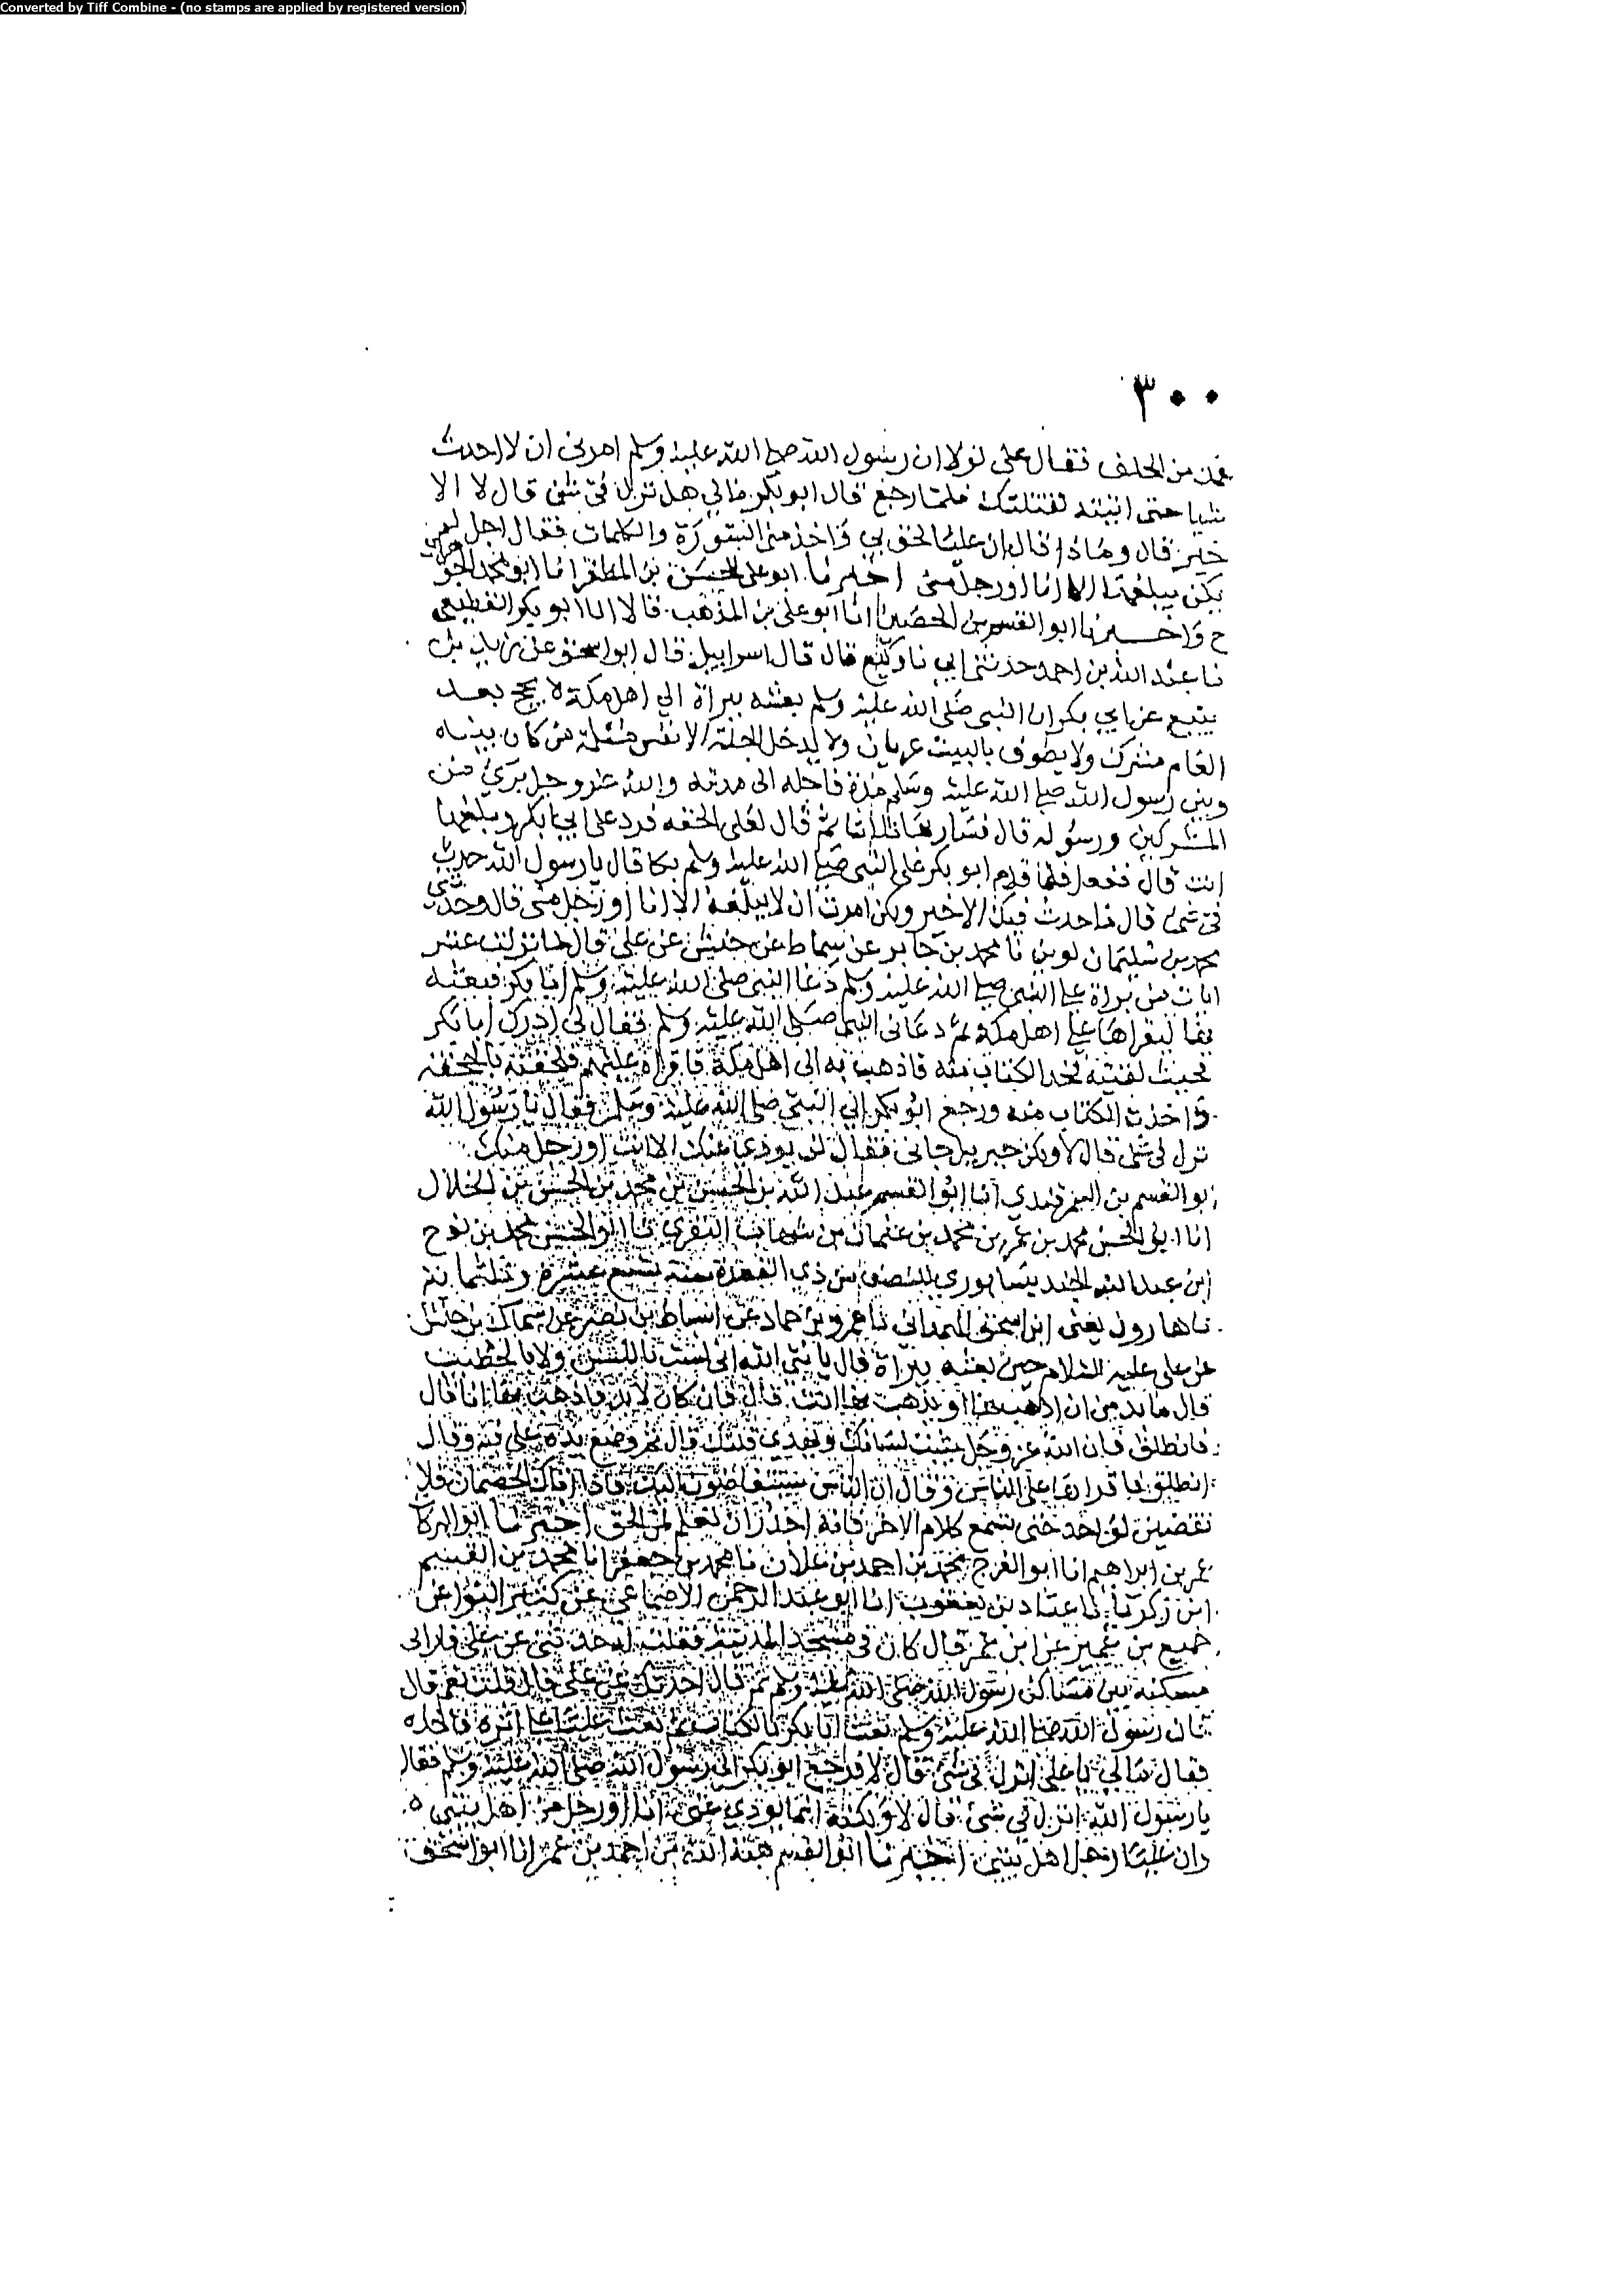 Converted by Tiff Combine - (no stamps are applied by registered version)
٣٠٠
من الحلف فقال علي لولا ان رسول الله صلى الله عليه وسلم امرني ان لا احدث
شيا حتى اتيته لقتلتك فلما رجع قال ابو بكر مالي هل نزل في شي قال لا الا
خير قال وماذا قال ان عليا لحق بي فاخذ مني السورة والكلمات فقال اجل لم
يكن يبلغها الا انا او رجل مني اخبرنا ابو علي الحسن بن المظفر انا ابو محمد الجوهري
ح واخبرنا ابو القسم بن الحصين انا ابو علي بن المذهب قالا انا ابو بكر القطيعي
نا عبد الله بن احمد حدثني ابي نا وكيع قال قال اسرايل قال ابو اسحق عن زيد بن
يثيع عن ابي بكر ان النبي صلى الله عليه وسلم بعثه ببراة الى اهل مكة لا يحج بعد
العام مشرك ولا يطوف بالبيت عريان ولا يدخل الجنة الا نفس مسلمة من كان بينه
وبين رسول الله صلى الله عليه وسلم مدة فاجله الى مدته والله عز وجل بري من
المشركين ورسوله قال فسار بها ثلاثا ثم قال لعلي الحقه فرد علي ابا بكر وبلغها
انت قال ففعل فلما قدم ابو بكر على النبي صلى الله عليه وسلم بكا قال يا رسول الله حدث
في شي قال ما حدث فيك الا خير ولكن امرت ان لا يبلغه الا انا او رجل مني قال وحدثني
محمد بن سليمان لوين نا محمد بن جابر عن سماك عن حنش عن علي قال لما نزلت عشر
ايات من براة على النبي صلى الله عليه وسلم دعا النبي صلى الله عليه وسلم ابا بكر فبعثه
بها ليقراها على اهل مكة ثم دعاني النبي صلى الله عليه وسلم فقال لي ادرك ابا بكر
فحيث لقيته فخذ الكتاب منه فاذهب به الى اهل مكة فاقراه عليهم فلحقته بالجحفة
فاخذت الكتاب منه ورجع ابو بكر الى النبي صلى الله عليه وسلم فقال يا رسول الله
نزل في شي قال لا ولكن جبريل جاني فقال لن يودي عنك الا انت او رجل منك
ابو القسم بن السمرقندي انا ابو القسم عبد الله بن الحسن بن محمد بن الحسن بن الخلال
انا ابو الحسن محمد بن عمر بن محمد بن عثمان بن شهاب نا ابو الحسن محمد بن نوح
ابن عبد الله الجند يسابوري للنصف من ذي القعدة سنة تسع عشرة وثلثماية
نا هارون يعني ابن اسحق الهمداني نا عمرو بن حماد عن اسباط بن نصر عن سماك بن حنش
عن علي عليه السلام حين بعثه ببراة قال يا نبي الله اني لست باللسن ولا بالخطيب
قال ما بد من ان اذهب بها او تذهب بها انت قال فان كان لا بد فاذهب بها انا قال
فانطلق فان الله عز وجل يثبت لسانك ويهدي قلبك قال ثم وضع يده على فيه وقال
انطلق فاقراها على الناس وقال ان الناس سيتقاضون اليك فاذا اتاك الخصمان فلا
تقضين لواحد حتى تسمع كلام الاخر فانه اجدر ان تعلم لمن الحق اخبرنا ابو البركات
عمر بن ابراهيم انا ابو الفرج محمد بن احمد بن علان نا محمد بن جعفر انا محمد بن القسم
ابن زكريا نا عباد بن يعقوب انا ابو عبد الرحمن عن كثير النوا عن
جميع بن عمير عن ابن عمر قال كان في مسجد المدينة فقلت له حدثني عن علي فاراني
مسكنه بين مساكن رسول الله صلى الله عليه وسلم ثم قال احدثك عن علي قال قلت نعم قال
فان رسول الله صلى الله عليه وسلم بعث ابا بكر بالكتاب ثم بعث عليا على اثره فاخذه
فقال مالي يا علي انزل في شي قال لا فرجع ابو بكر الى رسول الله صلى الله عليه وسلم فقال
يا رسول الله انزل في شي قال لا ولكنه انما يودي عني انا او رجل من اهل بيتي
وان عليا رجل اهل بيتي اخبرنا ابو القسم هبة الله بن احمد بن عمر انا ابو اسحق